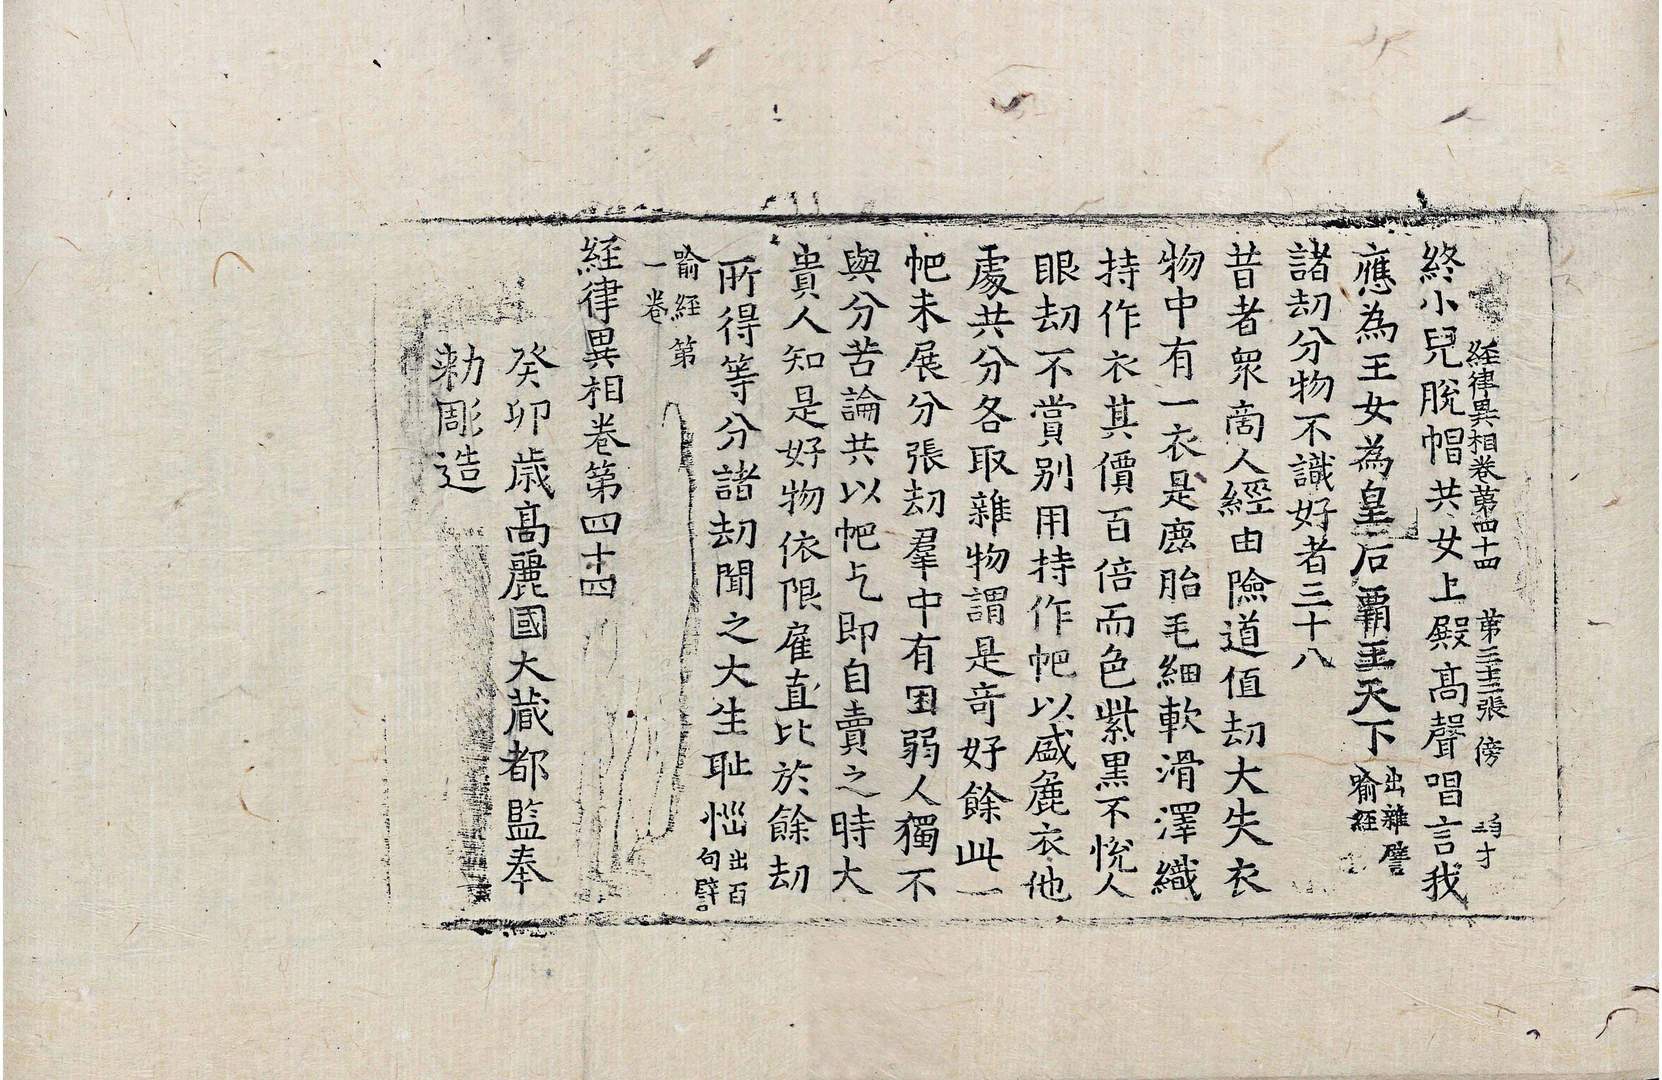 経律異相卷第四十四 第三十三張 傍
終小兒脫帽共女上殿高聲唱言我
應為王女為皇后覇王天下出雜譬喻経
諸刧分物不識好者三十八
昔者衆啇人經由險道值刧大失衣
物中有一衣是鹿胎毛細軟滑澤織
持作衣其價百倍而色紫黒不悅人
眼刧不賞别用持作帊以盛麁衣他
處共分各取雜物謂是竒好餘此一
帊未展分張刧羣中有困弱人獨不
與分苦論共以帊乞即自賣之時大
貴人知是好物依限雇直比於餘刧
所得等分諸刧聞之大生恥惱出百句譬
喻経第一卷
経律異相卷第四十四
癸卯歳高麗國大蔵都監奉
勑彫造